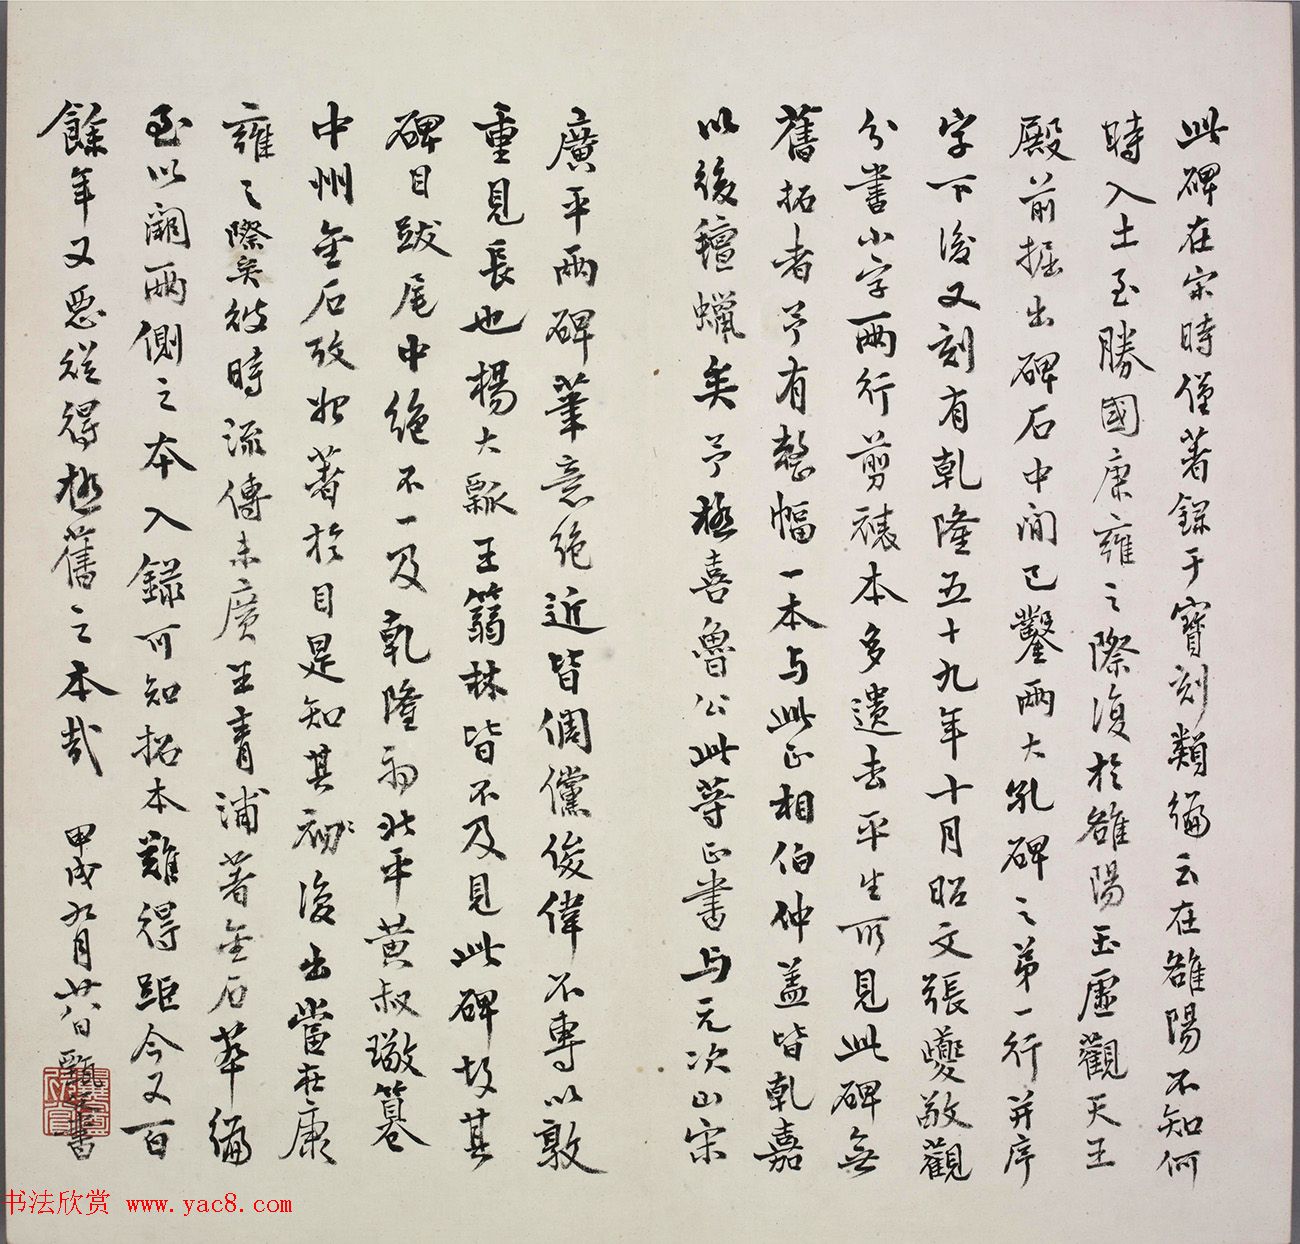 此碑在宋時僅著錄于寶刻類編云在雒陽不知何
時入土至勝國康雍之際復於雒陽玉虛觀天王
殿前掘出碑石中間已鑿兩大孔碑之第一行并序
字下後又刻有乾隆五十九年十月昭文張燮敬觀
分書小字兩行剪裱本多遺去平生所見此碑無
舊拓者予有整幅一本与此正相伯仲蓋皆乾嘉
以後氈蠟矣予極喜魯公此等正書与元次山宋
廣平兩碑筆意絶近皆倜儻俊偉不專以敦
重見長也楊大瓢王篛林皆不及見此碑故其
碑目跋尾中絶不一及乾隆初北平黃叔璥篹
中州金石攷始著於目是知其初後出當在康
雍之際矣彼時流傳未廣王青浦著金石萃編
至以闕兩側之本入録可知拓本難得距今又百
餘年又惡從得極舊之本哉 甲戌九月廿八日甄父書
书法欣赏 www.yac8.com